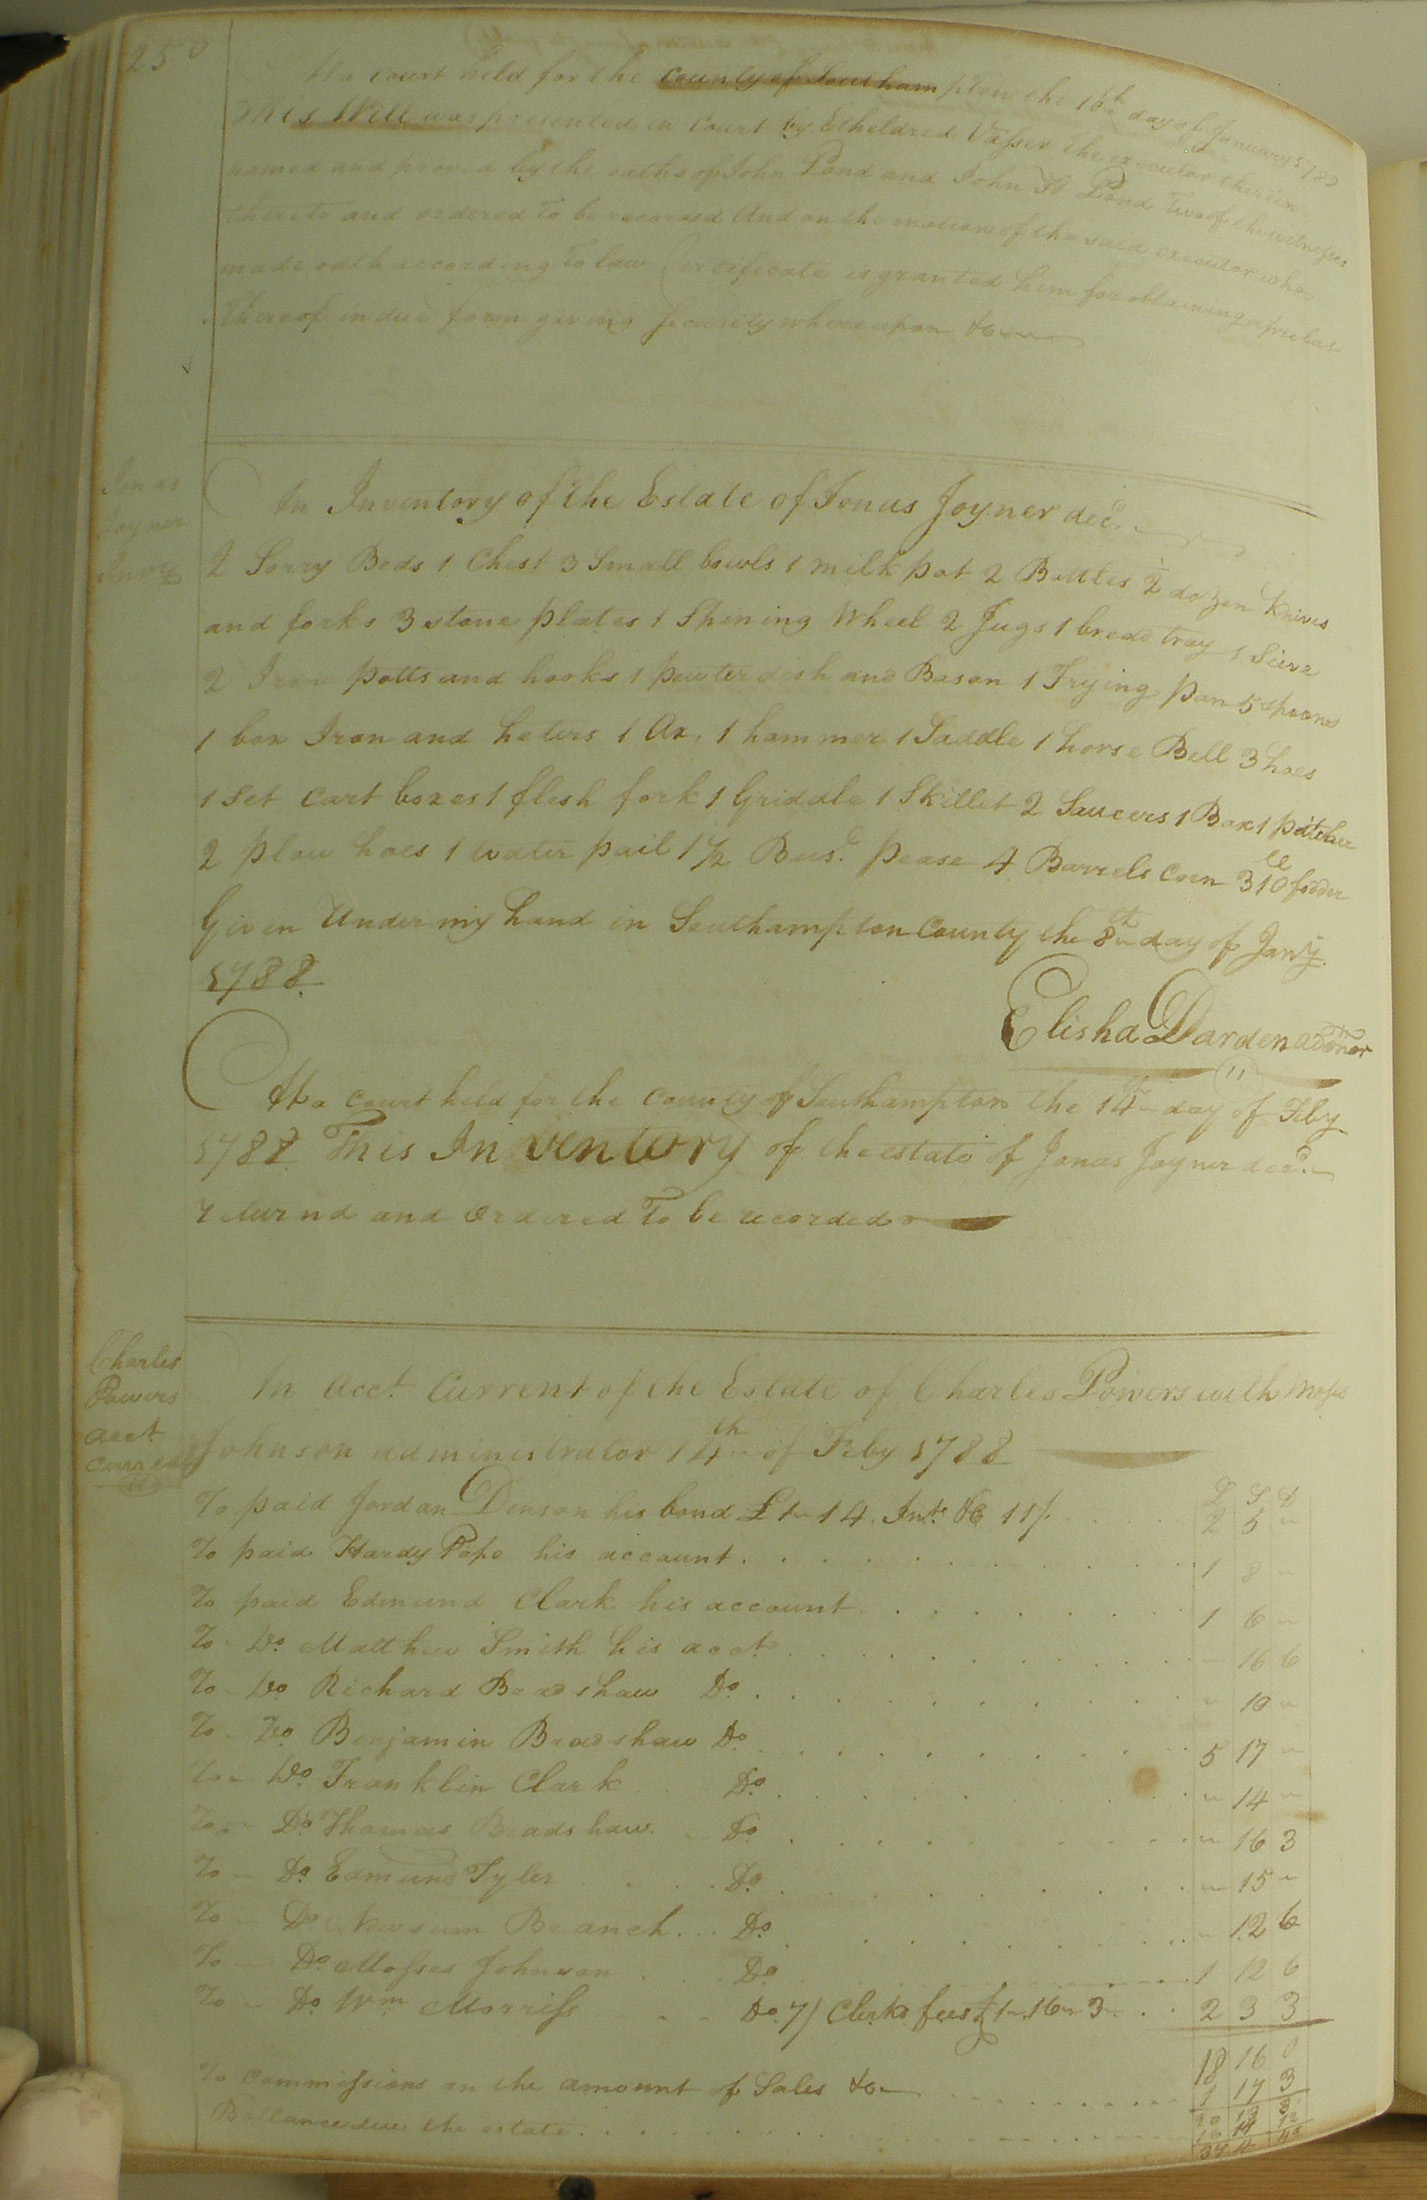 250
At a Court held for the County of Southampton the 10th day of January 1788
This Will was presented in Court by Etheldred Vasser the executor therein
named and proved by the oaths of John Pond and John Pond Two of the witnesses
thereto and ordered To be recorded And on the motion of the said executor who
made oath according To law Certificate is granted him for obtaining a probat
thereof in due form giving Security whereupon &c
Jonas
Joyner
Invy
An Inventory of the Estate of Jonas Joyner decd.
2 Sorry Beds 1 Chest 3 Small bowls 1 milk pot 2 Bottles ½ dozen Knives
and forks 3 stone plates 1 Spining Wheel 2 Jugs 1 bread tray 1 Sieve
2 Iron potts and hooks 1 pewter dish and Bason 1 Frying pan 5 spoons
1 box Iron and heters 1 Ax. 1 hammer 1 Saddle 1 horse Bell 3 hoes
1 Set Cart boxes 1 flesh fork 1 Griddle 1 Skillet 2 Saucers 1 Box 1 pitcher
2 plow hoes 1 water pail 1 ½ Bus. pease 4 Barrels Corn 310 fodder
Given Under my hand in Southampton County the 8th day of Jany.
1788.
Elisha Darden admor
At a Court held for the County of Southampton the 14th day of Feby
1788 This Inventory of the estate of Jonas Joyner decd.
returnd and Ordered To be recorded
Charles
Powers
acct.
Current
An Acct. Current of the Estate of Charles Powers with Moses
Johnson administrator 14th of Feby 1788
£ S D
To paid Jordan Denson his bond £1 - 14. Int. &c 11/. 2 5 "
To paid Hardy Pope his account. 1 8 "
To paid Edmund Clark his account 1 6 "
To Do Matthew Smith his acct. " 16 6
To Do Richard Bradshaw Do. " 10 "
To Do Benjamin Bradshaw Do 5 17 "
To Do Franklin Clark Do. " 14 "
To Do Thomas Bradshaw Do " 16 3
To Do Edmund Tyler Do. " 15 "
To Do Newsum Branch Do. " 12 6
To Do Mosses Johnson Do 1 12 6
To Do Wm Morriss Do. 7/ Clerks fees £1 - 16 - 3 2 3 3
18 16 0
To Commissions on the amount of Sales &c 1 17 3
Ballance due the estate